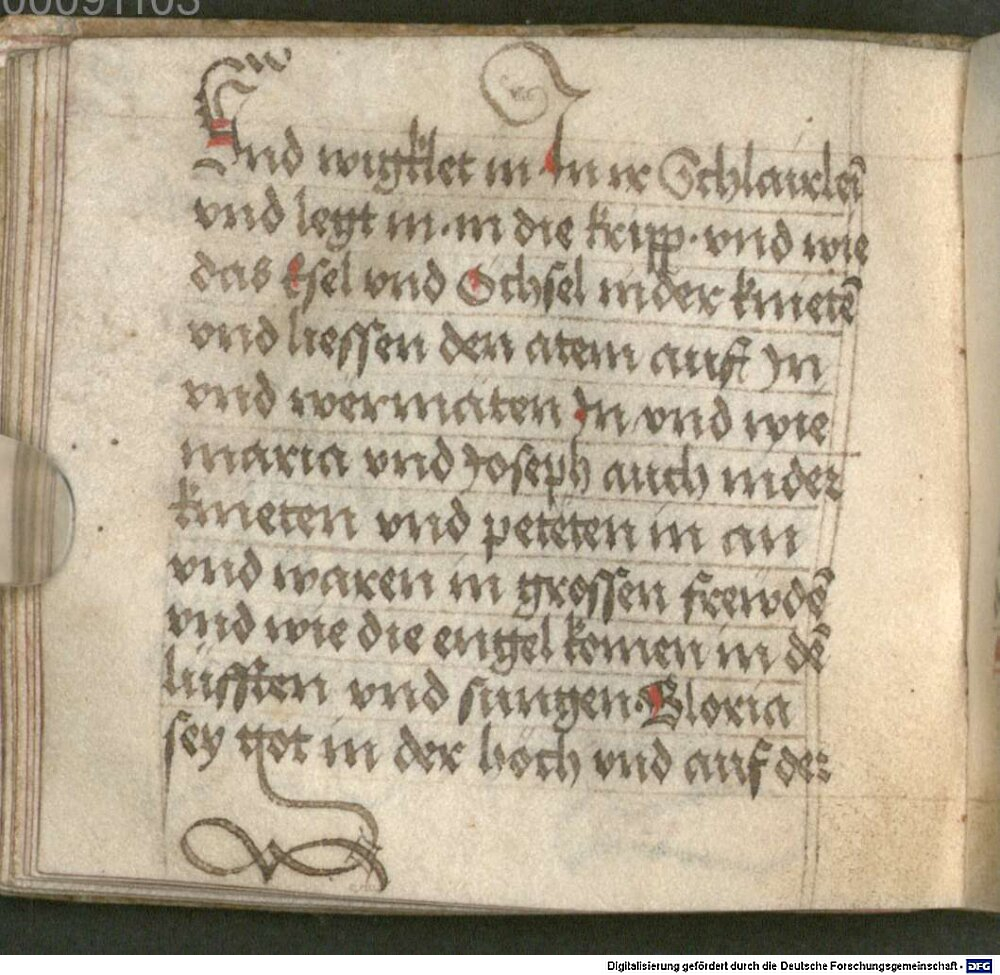 00091103
Und wigklet in In ir Schlairleī
vnd legt in · in die kripp · vnd wie
das Esel vnd Ochsel nider knietē
vnd liessen den atem auf In
vnd wermaten In vnd wie
maria vnd Joseph auch nider
knieten vnd peteten in an
vnd waren in grossen frewdē
vnd wie die engel komen in dē
lüfften vnd sungen · Gloria
sey got in der höch vnd auf der
Digitalisierung gefördert durch die Deutsche Forschungsgemeinschaft - DFG